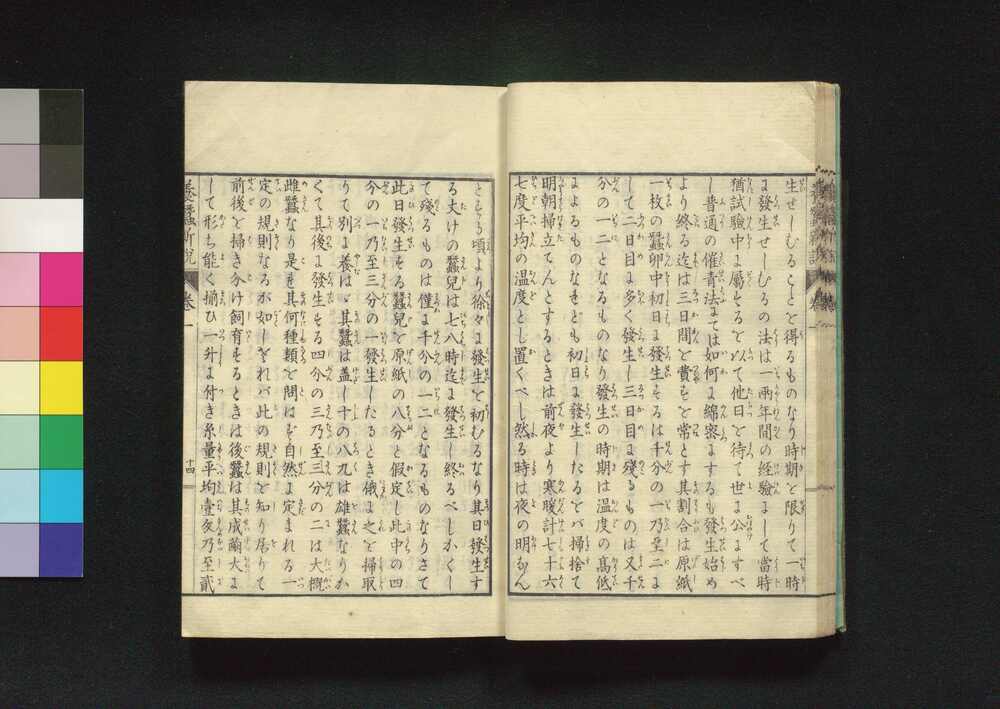 生せしむることを得るものなり時期を限りて一時
に發生せしむるの法は一両年間の経驗にして當時
猶試驗中に屬するを以て他日を待て世に公にすべ
し普通の催青法にては如何に綿密にするも發生始め
より終る迄は三日間を費すを常とす其割合は原紙
一枚の蠶卵中初日に發生するは千分の一乃至二に
して二日目に多く發生し三日目に殘るものは又千
分の一二となるものなり發生の時期は温度の髙低
によるものなれども初日に發生したるをバ掃捨て
明朝掃立てんとするときは前夜より寒暖計七十六
七度平均の温度とし置くべし然る時は夜の明なん
とする頃より徐々に發生を初むるなり其日發生す
る丈けの蠶兒は七八時迄に發生し終るべしかくし
て殘るものは僅に千分の一二となるものなりさて
此日發生する蠶兒を原紙の八分と假定し此中の四
今の一乃至三分の一發生したるとき俄に之を掃取
りて別に養はゞ其蠶は盖し十の八九は雄蠶なりか
くて其後に發生する四分の三乃至三分の二は大概
雌蠶なり是を其何種類を問はず自然に定まれる一
定の規則なるが如しされバ此の規則を知り居りて
前後を掃き分け飼育するときは後蠶は其成繭大に
して形ち能く揃ひ一升に付き糸量平均壹匁乃至貳
養蠶新説
卷一
十四